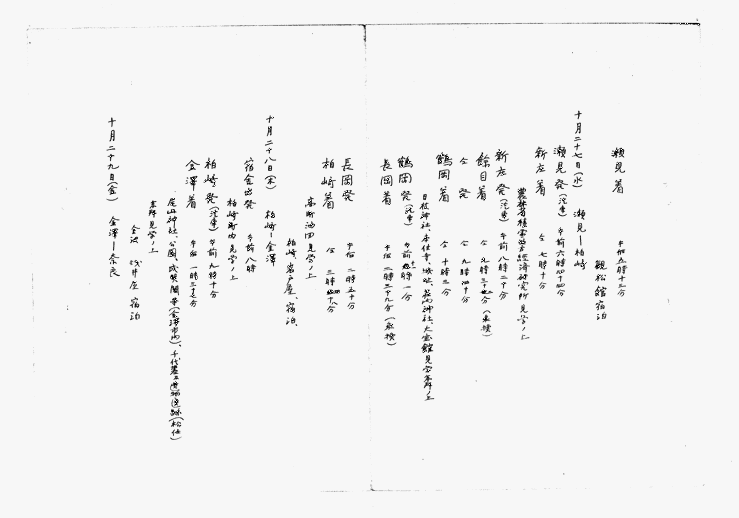 瀬見着　午后五時十三分
観松館宿泊
十月二十七日(水)　瀬見―柏崎
瀬見発(汽車)　午前六時四十四分
新庄着　仝　七時十分
農林省積雪地方経済研究所見学ノ上
新庄発(汽車)　午前八時二十分
餘目着　仝　九時三十分(乗換)
仝　発　仝　九時四十分
鶴岡着　仝　十時三分
日枝神社、本住寺、城址、荘内神社、大宝館見学
鶴岡発(汽車)　午前十一時一分
長岡着　午后二時三十九分(乗換)
長岡発　午后二時五十分
柏崎着　仝　三時四十分
高町油田見学ノ上
柏崎岩戸屋、宿泊、
十月二十八日(木)　柏崎―金澤
宿舎出発　午前八時
柏崎町内見学ノ上
柏崎発(汽車)　午前九時十分
金澤着　午后一時三十七分
尾山神社、公園、成巽閣等(金澤市内)、千代尼遺跡(松任)
見学ノ上
金沢　浅井屋　宿泊
十月二十九日(金)　金澤―奈良